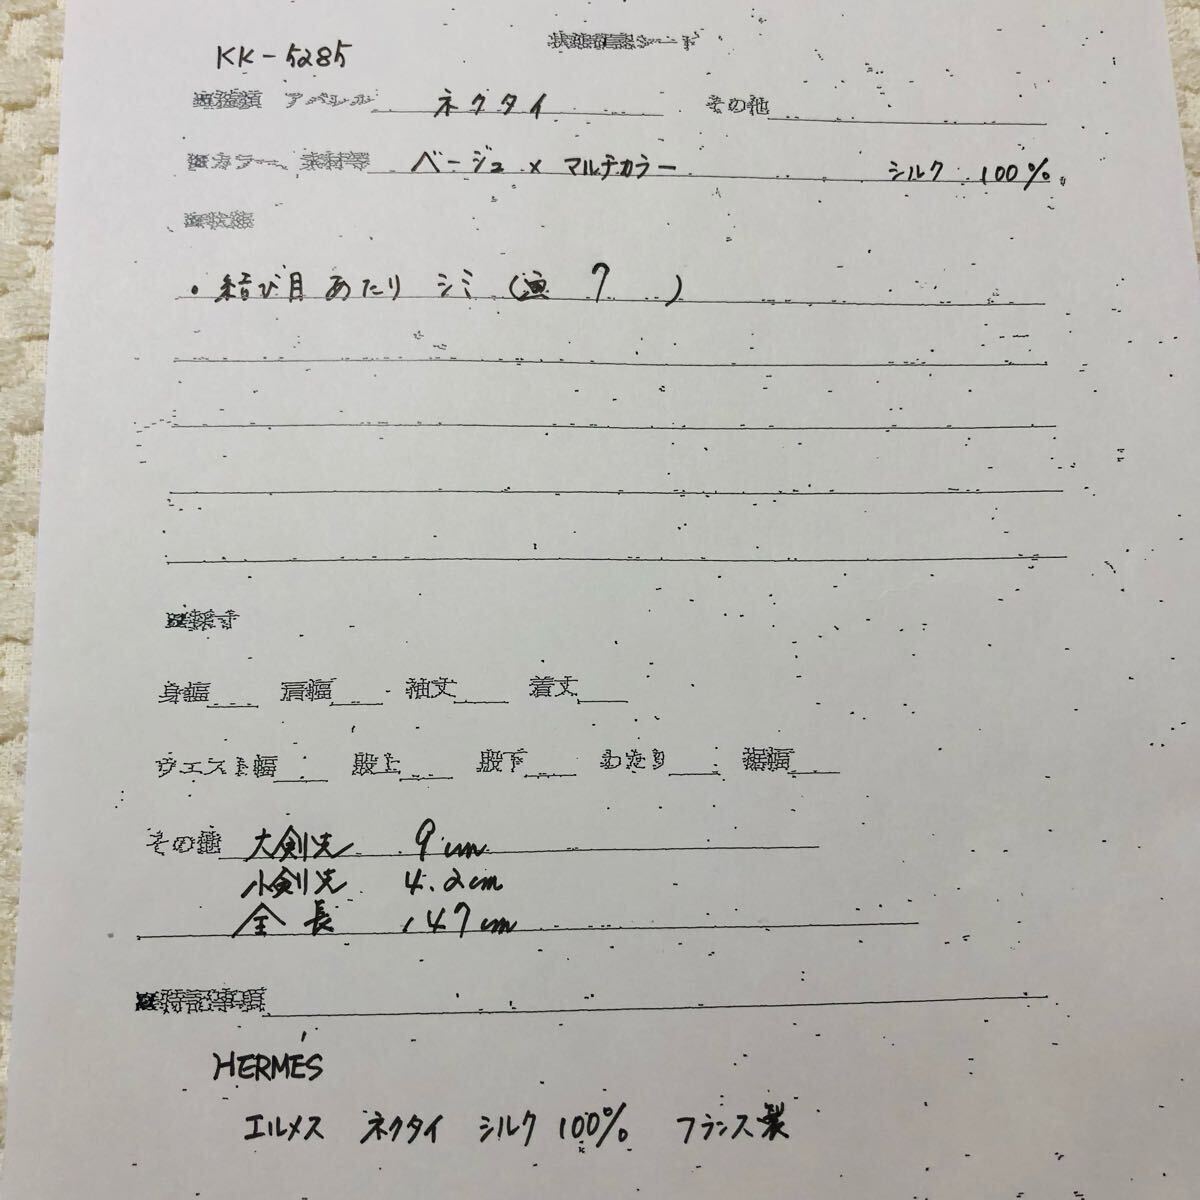 KK-5285
状態確認シート
アパレル ネクタイ その他
カラー、素材等 ベージュ×マルチカラー シルク 100%
状態
・結び目あたり シミ(画 7 )
採寸
身幅 肩幅 袖丈 着丈
ウエスト幅 股上 股下 わたり 裾幅
その他 大剣先 9cm
小剣先 4.2cm
全長 147cm
特記事項
HERMÉS
エルメス ネクタイ シルク 100% フランス製